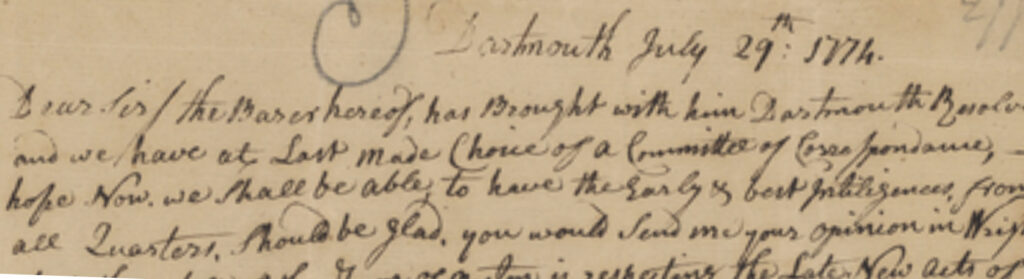 Dartmouth July 29th: 1774.
Dear Sir/ the Barer hereof, has Brought with him Dartmouth Resolv
and we have at Last made Choice of a Committee of Correspondance, –
hope Now. we shall be able, to have the Early & best Intiligences, from
all Quarters, Should be glad, you would Send me your opinion in Wri
is respecting the Late New acts of